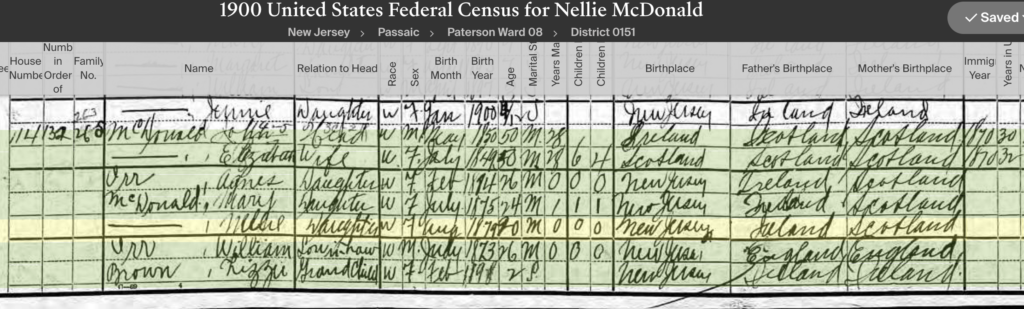 1900 United States Federal Census for Nellie McDonald
✓ Saved
New Jersey > Passaic > Paterson Ward 08 > District 0151
House Number Numb in Order of Family No. Name Relation to Head Race Sex Birth Month Birth Year Age Marital S Years Ma Children Children Birthplace Father's Birthplace Mother's Birthplace Immig Year Years in U
263
Jennie Daughter W F Jan 1900 S New Jersey Ireland Ireland
114 132 McDonald John Head W M May 1850 50 M 28 Ireland Scotland Scotland 1870 30
Elizabeth Wife W F July 50 M 28 6 4 Scotland Scotland Scotland 1870
Orr, Agnes Daughter W F Feb 1874 26 M 0 0 0 New Jersey Ireland Scotland
McDonald, Mary Daughter W F July 1875 24 M 1 1 1 New Jersey Ireland Scotland
Nellie Daughter W F 1879 M 0 0 0 New Jersey Ireland Scotland
Orr, William Son in law W M July 1873 26 M 0 0 0 New Jersey England England
Brown, Lizzie Grandchild W F Feb 2 S New Jersey Ireland Ireland